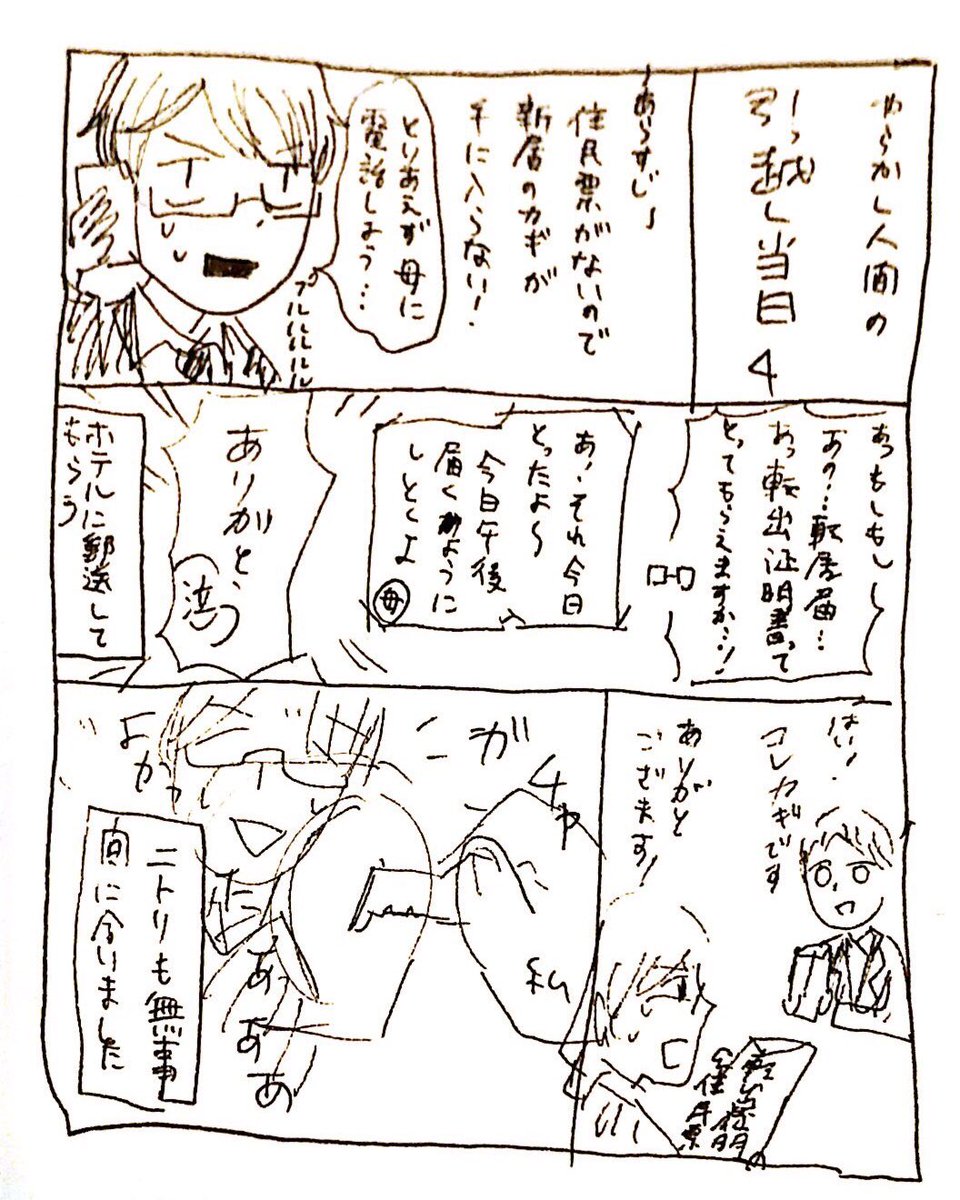 やらかし人間の
引っ越し当日 4
〜あらすじ〜
住民票がないので
新居のカギが
手に入らない!
とりあえず母に
電話しよう…
プルルルルル
あっもしもし
あの…転居届…
あっ転出証明書って
とってもらえますか…!
あ、それ今日
とったよ〜
今日午後
届くように
しとくよ
母
ありがとう
ホテルに郵送して
もらう
はい!
コレカギです
ありがと
ございます!
住民票
ガチャ
私
よかっ
たぁ
ぁ
ぁ
ニトリも無事
間に合いました